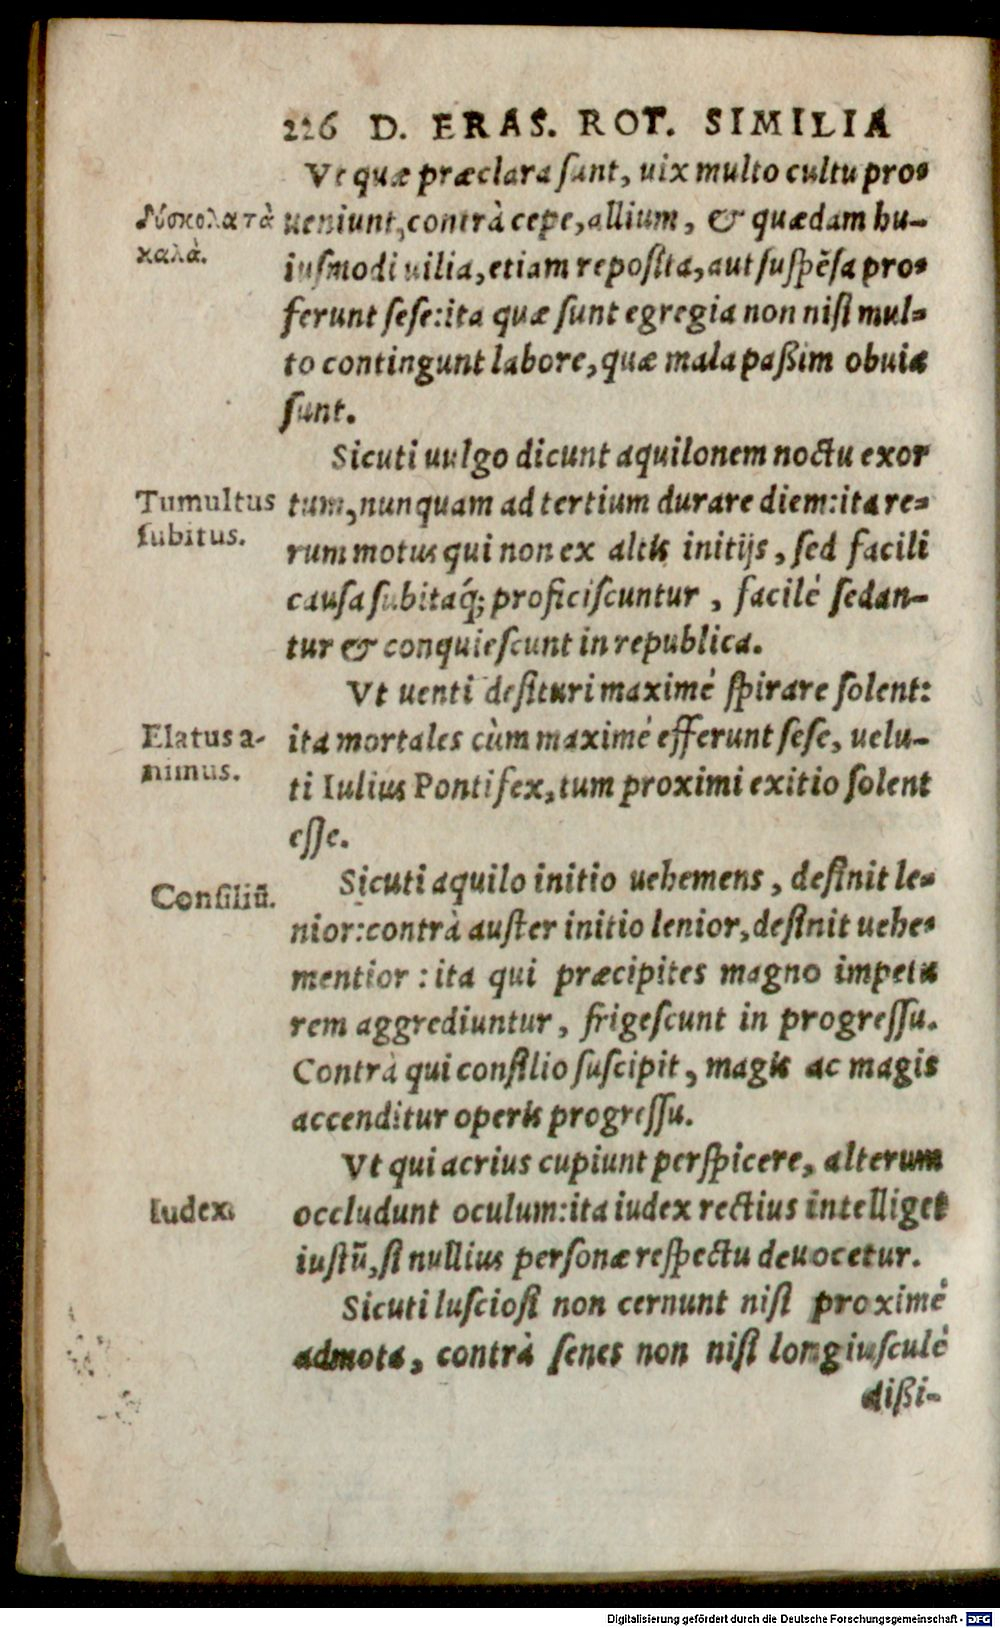 226 D. ERAS. ROT. SIMILIA
Vt quæ præclara sunt, uix multo cultu pro-
δύσκολα τὰ ueniunt, contrà cepe, allium, & quædam hu-
καλὰ. iusmodi uilia, etiam reposita, aut suspēsa pro-
ferunt sese: ita quæ sunt egregia non nisi mul-
to contingunt labore, quæ mala paßim obuia
sunt.
Sicuti uulgo dicunt aquilonem noctu exor
Tumultus tum, nunquam ad tertium durare diem: ita re-
subitus. rum motus qui non ex altis initijs, sed facili
causa subitaq́; proficiscuntur, facilè sedan-
tur & conquiescunt in republica.
Vt uenti desituri maximè spirare solent:
Elatus a- ita mortales cùm maximè efferunt sese, uelu-
nimus. ti Iulius Pontifex, tum proximi exitio solent
esse.
Sicuti aquilo initio uehemens, desinit le-
Consiliū. nior: contrà auster initio lenior, desinit uehe-
mentior: ita qui præcipites magno impetu
rem aggrediuntur, frigescunt in progressu.
Contrà qui consilio suscipit, magis ac magis
accenditur operis progressu.
Vt qui acrius cupiunt perspicere, alterum
Iudex. occludunt oculum: ita iudex rectius intelliget
iustū, si nullius personæ respectu deuocetur.
Sicuti lusciosi non cernunt nisi proximè
admota, contrà senes non nisi longiusculè
dißi-
Digitalisierung gefördert durch die Deutsche Forschungsgemeinschaft - DFG